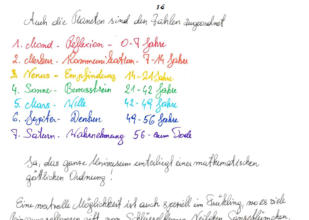 16
Auch die Planeten sind den Zahlen zugeordnet
1. Mond - Reflexion - 0-7 Jahre
2. Merkur - Kommunikation - 7-14 Jahre
3. Venus - Empfindung 14-21 Jahre
4. Sonne - Bewusstsein 21-42 Jahre
5. Mars - Wille 42-49 Jahre
6. Jupiter - Denken 49-56 Jahre
7. Saturn - Wahrnehmung 56 - zum Tode
Ja, das ganze Universum unterliegt einer mathematischen
göttlichen Ordnung!
Eine wertvolle Möglichkeit ist auch speziell im Frühling, wo es viele